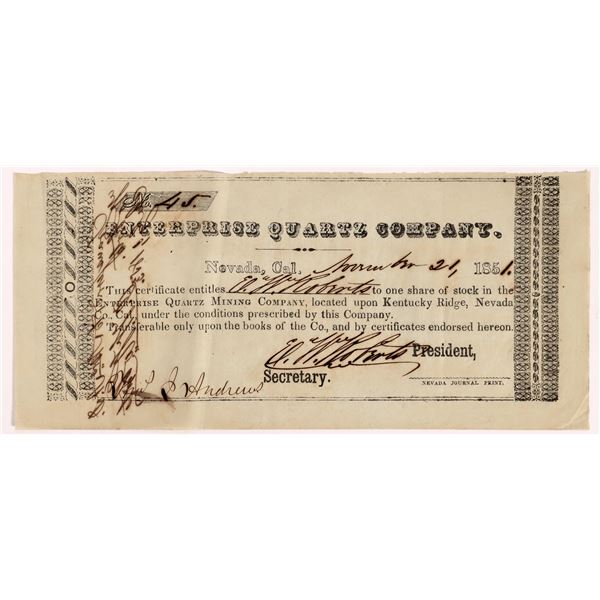 No. 45.
ENTERPRISE QUARTZ COMPANY.
Nevada, Cal. November 21, 1851.
THIS certificate entitles E. W. Roberts to one share of stock in the
ENTERPRISE QUARTZ MINING COMPANY, located upon Kentucky Ridge, Nevada
Co., Cal., under the conditions prescribed by this Company.
Transferable only upon the books of the Co., and by certificates endorsed hereon.
E. W. Roberts President,
Secretary.
J. Andrews
NEVADA JOURNAL PRINT.